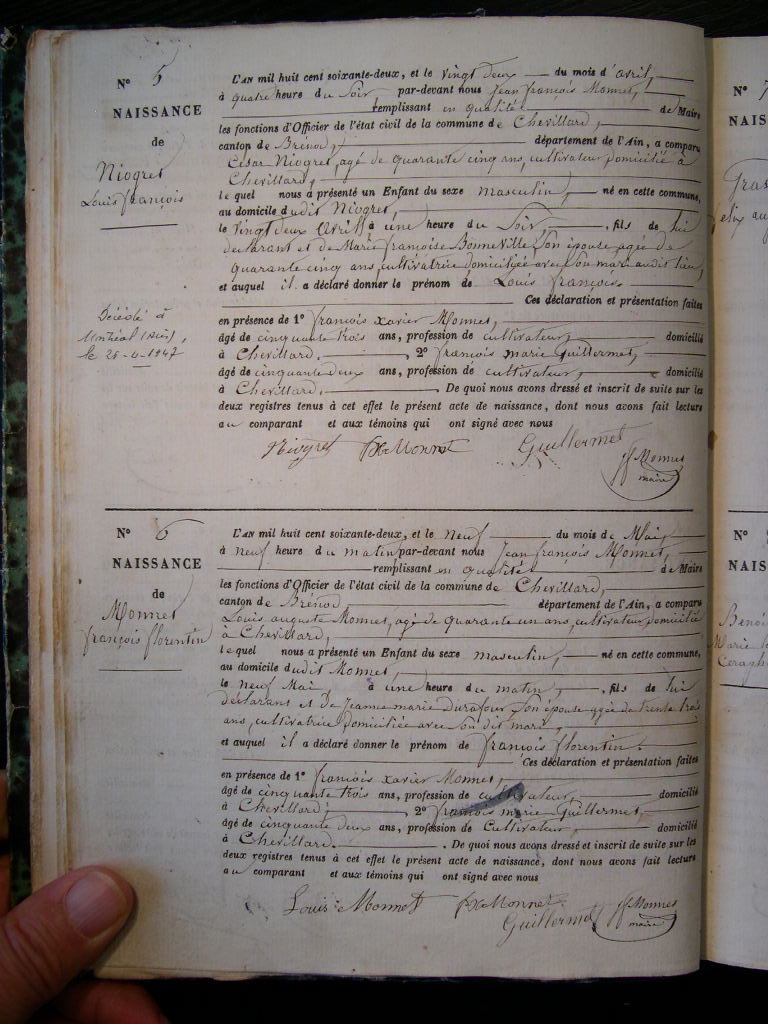 N° 5
NAISSANCE
de
Niogret
Louis françois
Décédé à
Montréal (Ain),
le 25-4-1947
L'AN mil huit cent soixante-deux, et le vingt deux du mois d'avril,
à quatre heure du Soir par-devant nous Jean françois Monnet,
remplissant en qualité de Maire
les fonctions d'Officier de l'état civil de la commune de Chevillard,
canton de Brénod, département de l'Ain, a comparu
César Niogret, agé de quarante cinq ans, cultivateur domiciliée à
Chevillard,
lequel nous a présenté un Enfant du sexe masculin, né en cette commune,
au domicile dudit Niogret,
le vingt deux Avril à une heure du Soir, fils de lui
declarant et de Marie françoise Bonneville, Son épouse agée de
quarante cinq ans, cultivatrice domiciliée avec Son mari audit lieu,
et auquel il a déclaré donner le prénom de Louis françois
Ces déclaration et présentation faites
en présence de 1° françois xavier Monnet,
âgé de cinquante trois ans, profession de cultivateur, domicilié
à Chevillard. 2° françois marie Guillermet,
âgé de cinquante deux ans, profession de cultivateur, domicilié
à Chevillard. De quoi nous avons dressé et inscrit de suite sur les
deux registres tenus à cet effet le présent acte de naissance, dont nous avons fait lecture
au comparant et aux témoins qui ont signé avec nous
Niogret fxMonnet Guillermet jfMonnet
maire
N° 6
NAISSANCE
de
Monnet
françois florentin
L'AN mil huit cent soixante-deux, et le Neuf du mois de Mai,
à neuf heure du matin par-devant nous Jean françois Monnet,
remplissant en qualité de Maire
les fonctions d'Officier de l'état civil de la commune de Chevillard,
canton de Brénod département de l'Ain, a comparu
Louis auguste Monnet, agé de quarante un ans, cultivateur domicilié
à Chevillard,
lequel nous a présenté un Enfant du sexe masculin, né en cette commune,
au domicile dudit Monnet,
le neuf Mai à une heure du matin, fils de lui
déclarant et de Jeanne marie Durafour Son épouse agée de trente trois
ans, cultivatrice domiciliée avec Son dit mari,
et auquel il a déclaré donner le prénom de françois florentin.
Ces déclaration et présentation faites
en présence de 1° françois xavier Monnet,
âgé de cinquante trois ans, profession de cultivateur, domicilié
à Chevillard; 2° françois marie Guillermet,
âgé de cinquante deux ans, profession de Cultivateur, domicilié
à Chevillard. De quoi nous avons dressé et inscrit de suite sur les
deux registres tenus à cet effet le présent acte de naissance, dont nous avons fait lecture
au comparant et aux témoins qui ont signé avec nous
Louis Monnet fxMonnet
Guillermet jfMonnet
maire
N° 7
NAIS
N°
NAIS